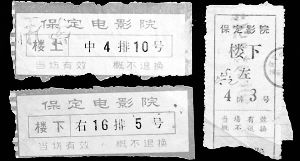 保定电影院
楼上 中4排10号
当场有效 概不退换
保定电影院
楼下 右16排5号
当场有效 概不退换
保定电影院
楼下
左
4排3号
当场有效
概不退换